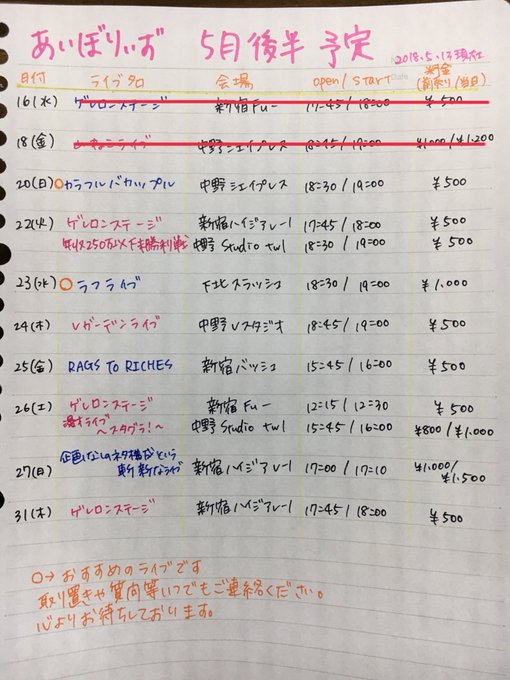 あいぼりぃず 5月後半 予定
2018.5.17現在
日付 ライブ名 会場 open / start 料金
(前売り/当日)
16(水) ゲレロンステージ 新宿Fu- 17:45 / 18:00 ¥500
18(金) ライブ 中野シェイプレス 18:45 / 19:00 ¥1000 / ¥1.200
20(日) ○カラフルバカップル 中野シェイプレス 18:30 / 19:00 ¥500
22(火) ゲレロンステージ 新宿ハイジアV-1 17:45 / 18:00 ¥500
年収250万以下 勝利戦 中野 studio twl 18:30 / 19:00 ¥500
23(水) ○ラフライブ 下北スラッシュ 18:30 / 19:00 ¥1.000
24(木) Vガーデンライブ 中野Vスタジオ 18:45 / 19:00 ¥500
25(金) RAGS TO RICHES 新宿バッシュ 15:45 / 16:00 ¥500
26(土) ゲレロンステージ 新宿Fu- 12:15 / 12:30 ¥500
漫才ライブ
～スタグラ!～ 中野 studio twl 15:45 / 16:00 ¥800 / ¥1.000
27(日) 企画なしのネタ構成という
斬新なライブ 新宿ハイジアV-1 17:00 / 17:10 ¥1.000 /
¥1.500
31(木) ゲレロンステージ 新宿ハイジアV-1 17:45 / 18:00 ¥500
○→おすすめのライブです
取り置きや質問等いつでもご連絡ください。
心よりお待ちしております。